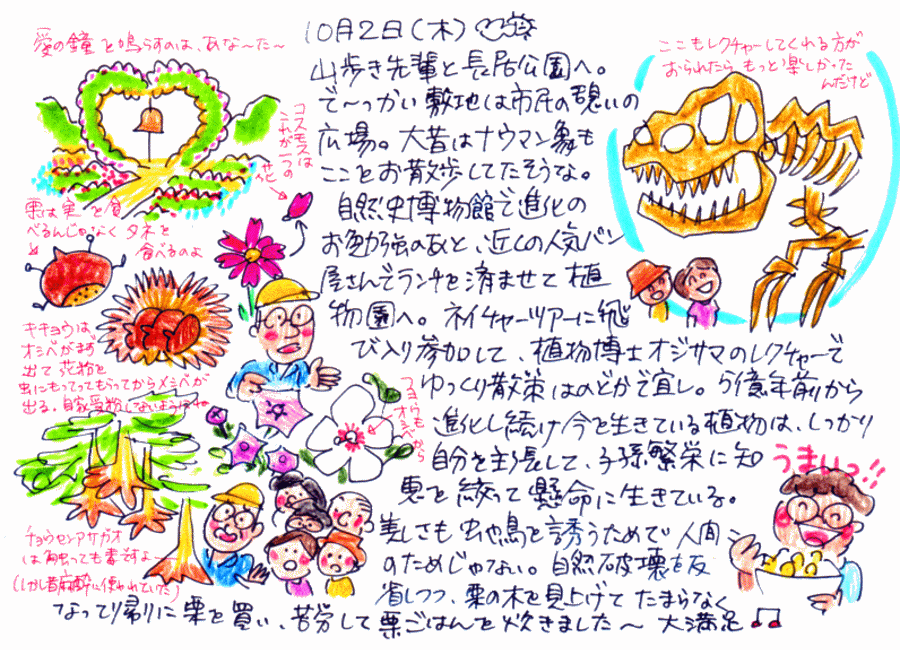 10月2日(木)
山歩き先輩と長居公園へ。
で〜っかい敷地は市民の憩いの
広場。大昔はナウマン象も
ここをお散歩してたそうな。
自然史博物館で進化の
お勉強のあと、近くの人気パン
屋さんでランチを済ませて植
物園へ。ネイチャーツアーに飛
び入り参加して、植物博士オジサマのレクチャーで
ゆっくり散策はのどかで宜し。5億年前から
進化し続け今を生きている植物は、しっかり
自分を主張して、子孫繁栄に知
恵を絞って懸命に生きている。
美しさも虫や鳥を誘うためで人間
のためじゃない。自然破壊を反
省しつつ、栗の木を見上げてたまらなく
なって帰りに栗を買い、苦労して栗ごはんを炊きました〜 大満足
愛の鐘を鳴らすのは、あな〜た〜
コスモスは
これが一つの
花
栗は実を食
べるんじゃなくタネを
食べるのよ
キキョウは
オシベがまず
出て花粉を
虫にもってってもらってからメシベが
出る。自家受粉しないよう
チョウセンアサガオ
は触っても毒ですよ
(しかし昔麻酔に使われていた)
ここもレクチャーしてくれる方が
おられたらもっと楽しかった
んだけど
うまいっ!!